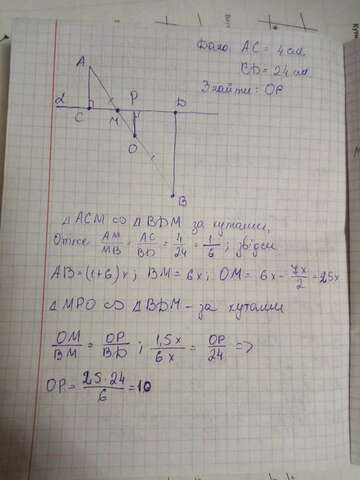 Дано AC = 4 см
CD = 24 см
Знайти: OP
A
α
C
M
P
D
O
B
△ ACM ∾ △ BDM за кутами,
Отже AM/MB = AC/BD = 4/24 = 1/6; звідси
AB = (1+6)x; BM = 6x; OM = 6x - 7x/2 = 25x
△ MPO ∾ △ BDM - за кутами
OM/BM = OP/BD; 1,5x/6x = OP/24 =>
OP = 25·24/6 = 10